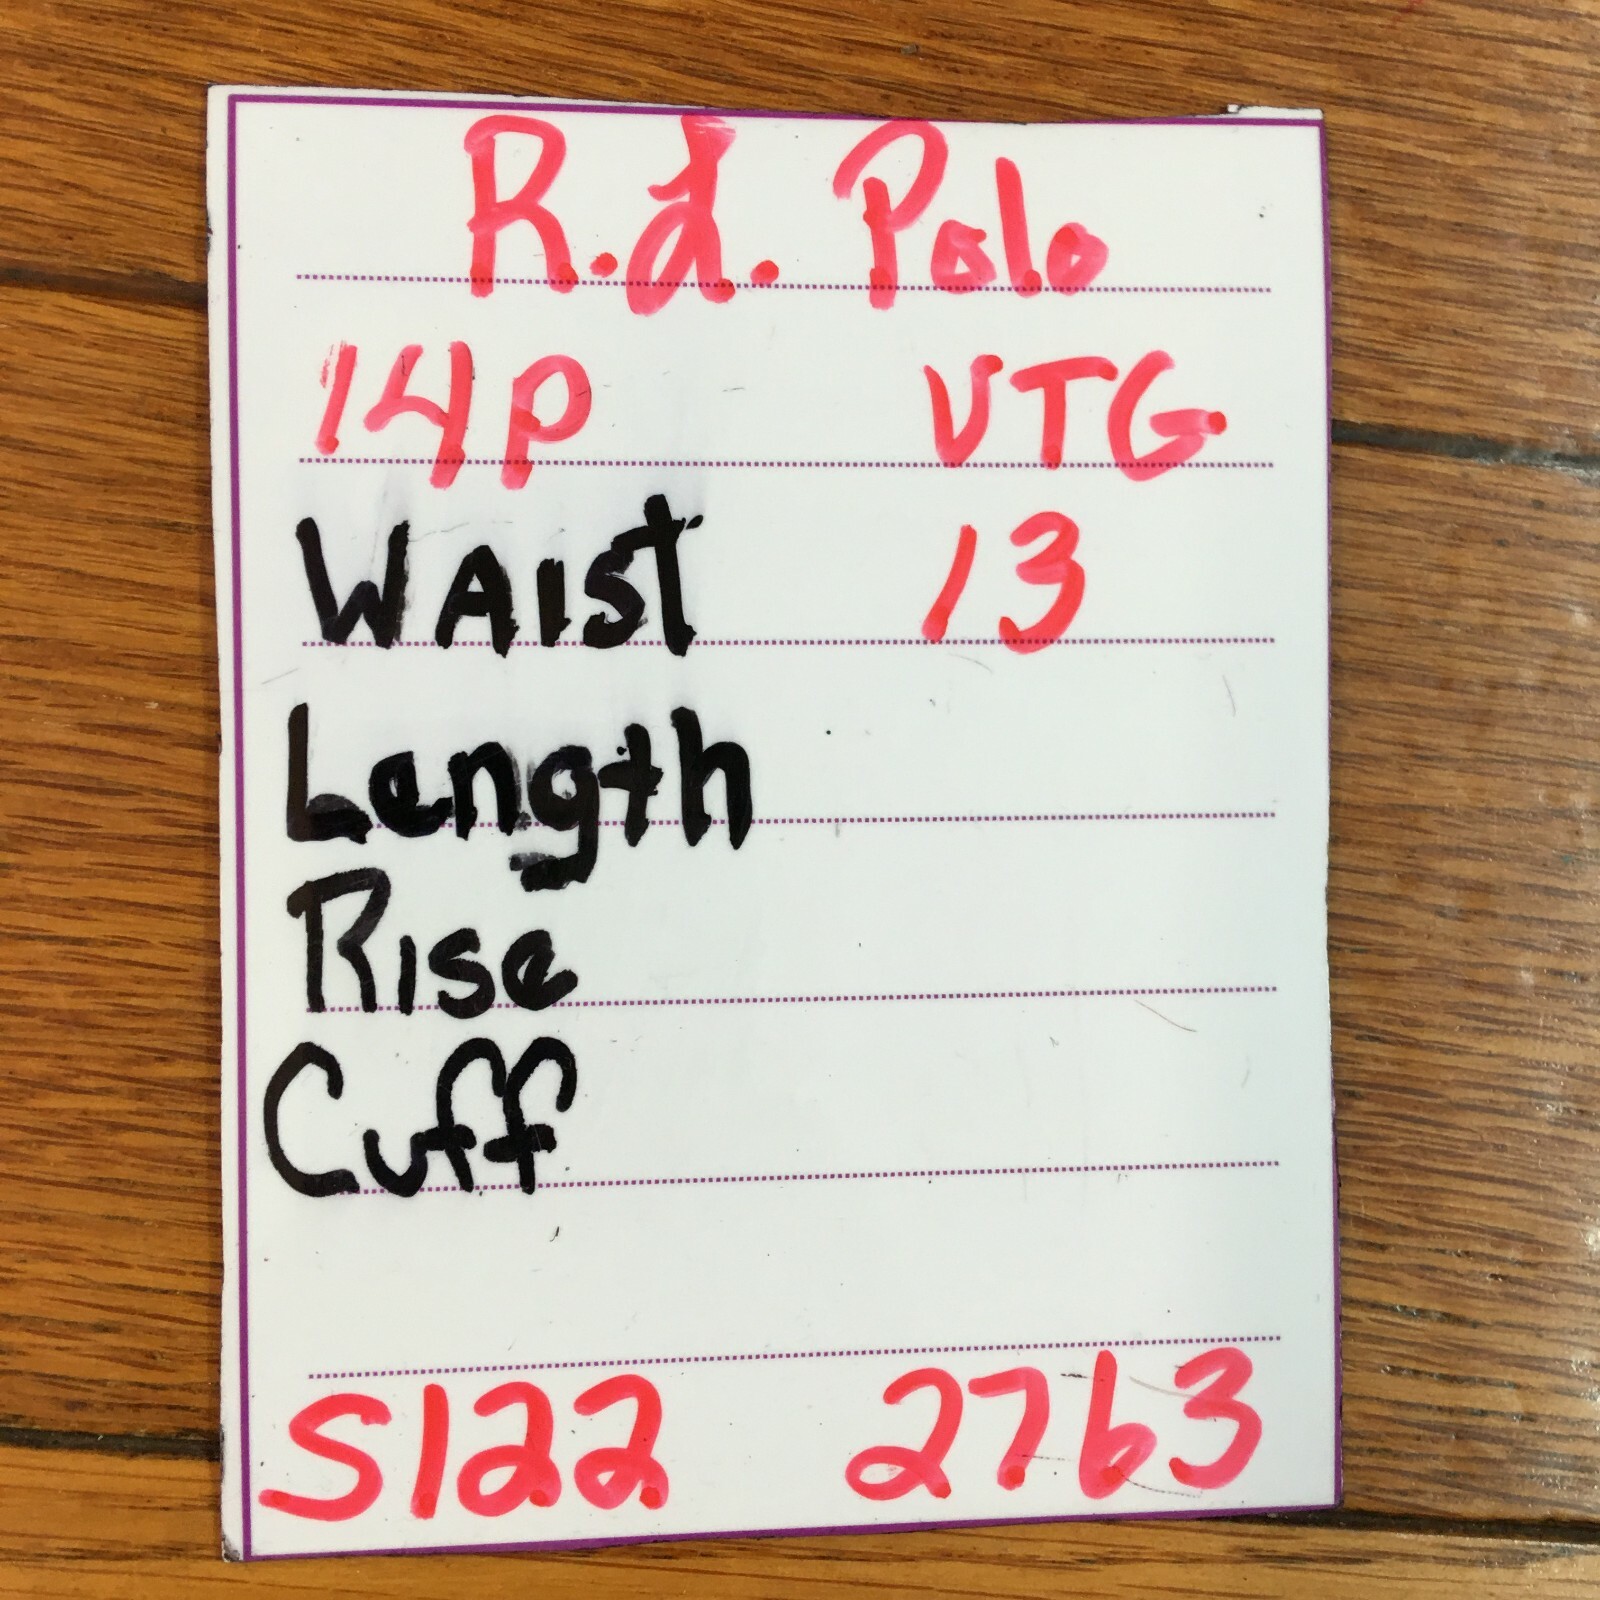 R.L. Polo
14P VTG
Waist 13
Length
Rise
Cuff
S122 2763